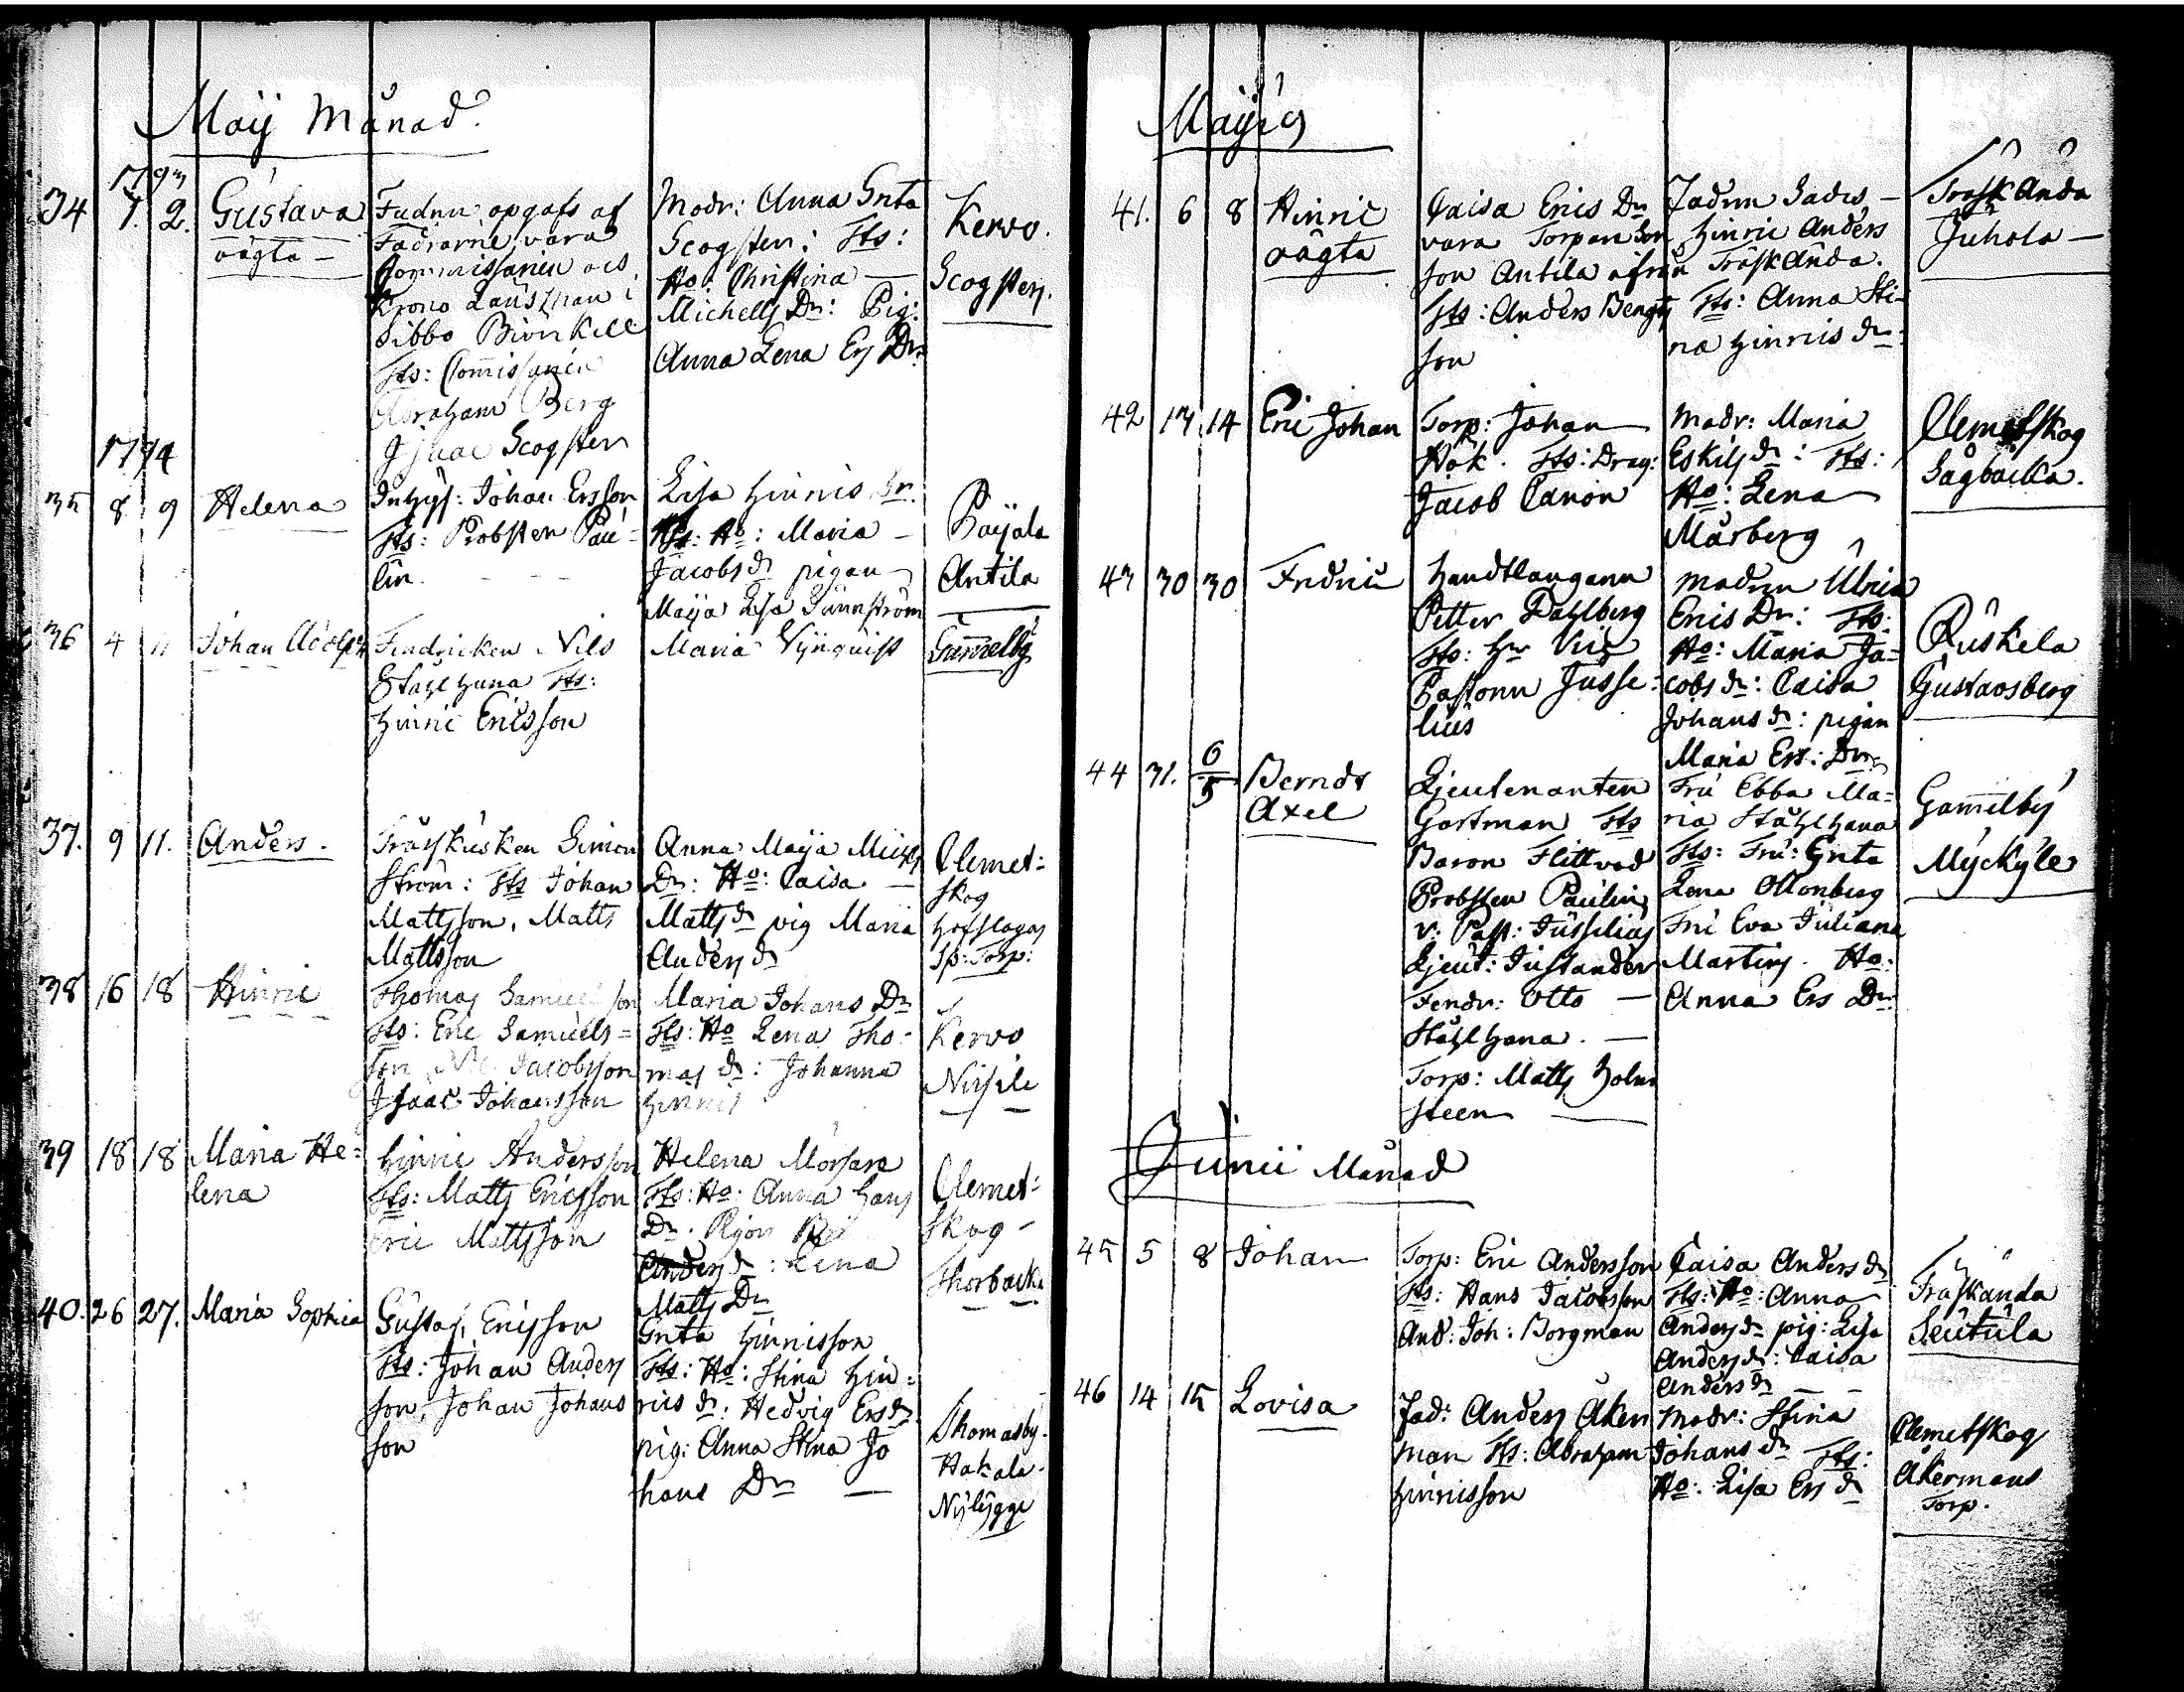 Maij Månad.
1793
34 1. 2. Gustava
oägta
Fadren opgafs af
Fadrarne vara
Commissarien ocs
Krono Länsman i
Sibbo Biörkell
Fts: Commissarien
Abraham Berg
Isaac Scogster
Modr: Anna Greta
Scogster: Fts:
Ho: Christina
Michels Dr: Pig:
Anna Lena Ers Dr
Kervo.
Scogsters.
1794
35 8 9 Helena
Inhys: Johan Ersson
Fts: Probsten Pau=
lin
Lisa Hinrics Dr.
Fts: Ho: Maria
Jacobs dr pigan
Maija Lisa Sunnström
Paijala
Antila
36 4 11 Johan Adolph
Fendricken Nils
Stahlhana Fts:
Hinric Ericsson
Maria Nynquist
Gammelby
37. 9 11. Anders.
Träskusken Simon
Ström: Fts Johan
Mattsson, Matts
Mattsson
Anna Maija Michels
Dr: Ho: Caisa
Matts dr pig Maria
Anders dr
Clemet=
skog
Hofslagas
sp: Torp:
38 16 18 Hinric
Thomas Samuelsson
Fts: Eric Samuels=
son Jacobsson
Isaac Johansson
Maria Johans Dr
Fts: Ho Lena Tho=
mas dr: Johanna
Hinrics
Kervo
Nissile
39 18 18 Maria He=
lena
Hinric Andersson
Fts: Matts Ericsson
Eric Mattsson
Helena Morsare
Fts: Ho: Anna Hans
Dr. Pigan
Anders dr: Lena
Matts Dr
Clemet=
skog
Thorbacka
40. 26 27. Maria Sophia
Gustaf Ericsson
Fts: Johan Anders
son, Johan Johans
son
Greta Hinricsson
Fts: Ho: Stina Hin=
rics dr: Hedvig Ers dr
pig: Anna Stina Jo
hans Dr
Thomasby.
Hakala.
Nybygge
Maijus
41. 6 8 Hinric
oägta
Caisa Erics Dr
vara Torparson
son Antila ifrån
Fts: Anders Bengts
son
Fadren Sades
Hinric Anders
Träskända.
Fts: Anna Sti=
na Hinrics dr:
Träskända
Juhola
42 13 14 Eric Johan
Torp: Johan
Hök. Fts: Drag:
Jacob Canon
Modr: Maria
Eskils dr: Fts:
Ho: Lena
Mårberg
Clemetskog
Sågbacka.
43 30 30 Fredric
Handtlangaren
Petter Dahlberg
Fts: Hr Vice
Pastorn Jusse=
lius
Modren Ulrica
Erics Dr: Fts:
Ho: Maria Ja=
cobs dr: Caisa
Johans dr: pigan
Maria Ers: Dr
Ruskela
Gustavsberg
44 31. 6/5 Berndt
Axel
Lieutenanten
Gartman Fts
Baron Flittvod
Probsten Paulin,
v: Past: Jusselius
Lieut: Justander
Fendr: Otto
Stahlhana.
Torp: Matts Holm
steen
Fru Ebba Ma=
ria Stahlhana
Fts: Fru: Greta
Lena Ottonberg
Fru Eva Juliana
Martins. Ho:
Anna Ers Dr.
Gammelby
Myckyle
Junii Månad
45 5 8 Johan
Torp: Eric Andersson
Fts: Hans Jacobsson
And: Joh: Borgman
Caisa Anders dr
Fts: Ho: Anna
Anders dr pig: Lisa
Anders dr: Caisa
Anders dr
Träskända
Seutula
46 14 15 Lovisa
Fad: Anders Åker
man Fts: Abraham
Hinricsson
Modr: Stina
Johans dr Fts:
Ho: Lisa Ers dr
Clemetskog
Åkermans
Torp.